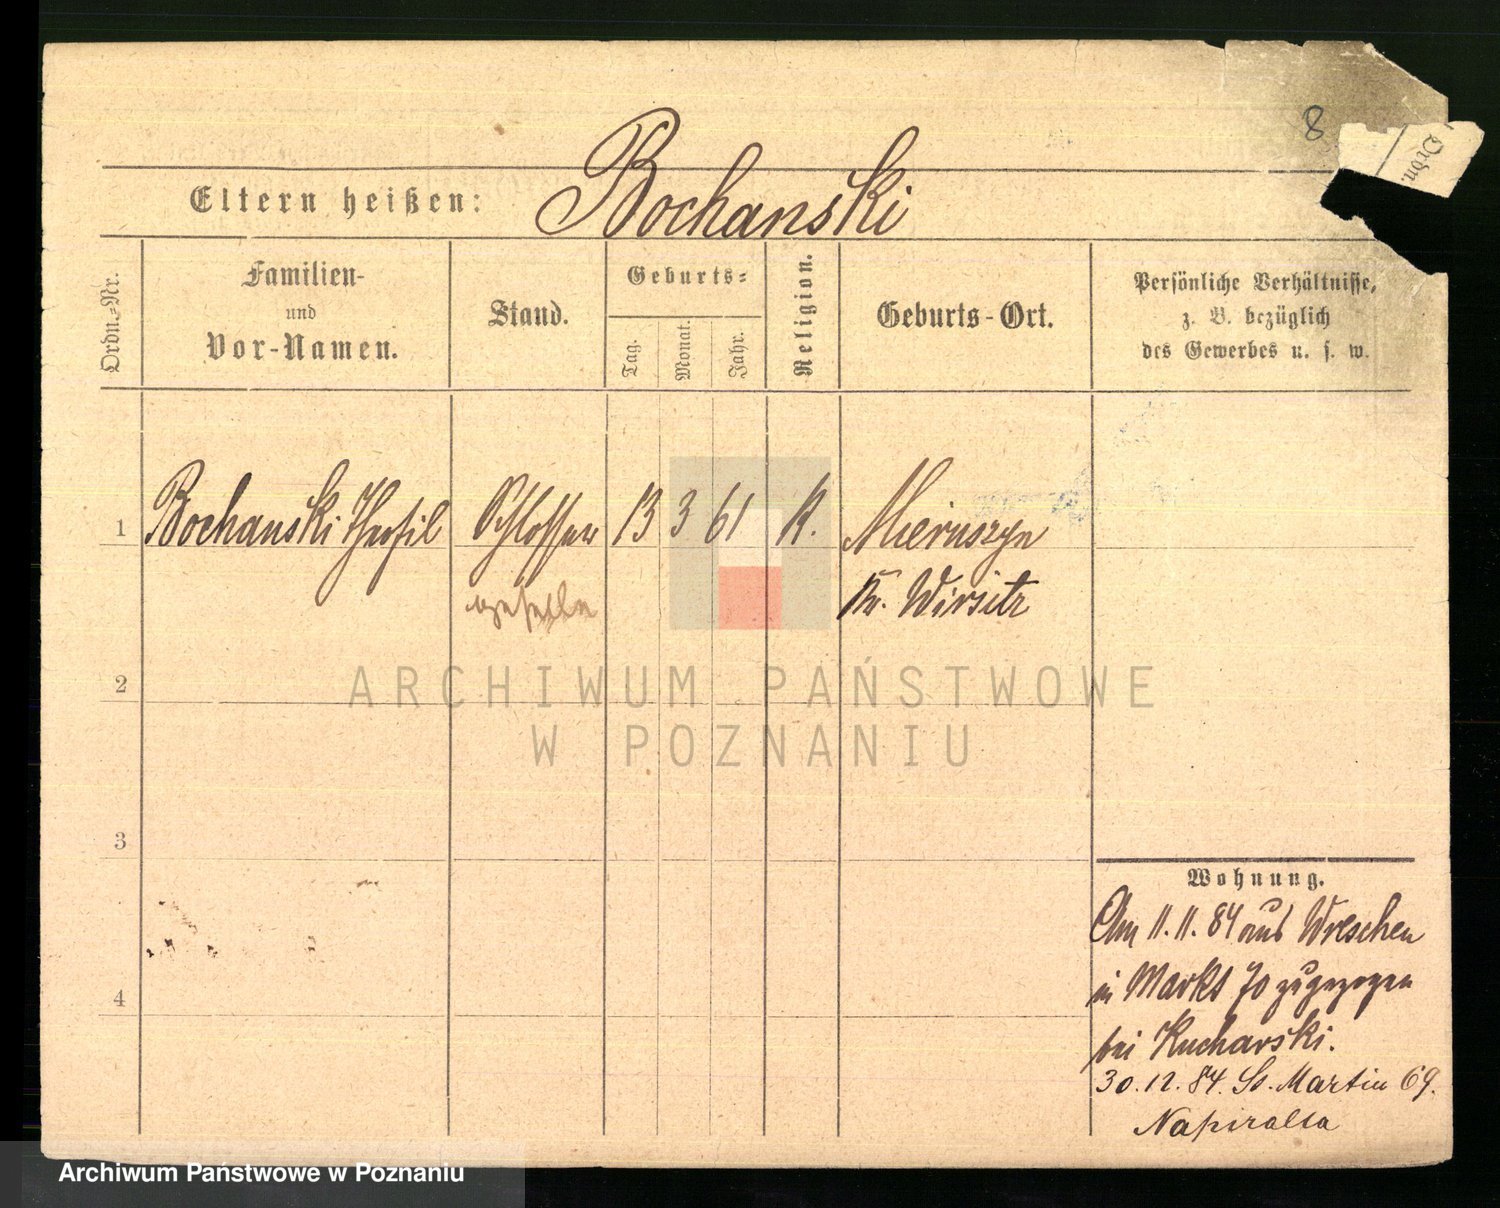 8
Ordn.
Eltern heißen: Bochanski
Ordn.-Nr.
Familien-
und
Vor-Namen.
Stand.
Geburts-
Tag.
Monat.
Jahr.
Religion.
Geburts-Ort.
Persönliche Verhältnisse,
z. B. bezüglich
des Gewerbes u. s. w.
1 Bochanski Theofil Schlosser 13 3 61 K. Mieruszyn
geselle Kr. Wirsitz
2
ARCHIWUM PAŃSTWOWE
W POZNANIU
3
4
Wohnung.
Am 11.11.84 aus Wreschen
in Markt 70 zugezogen
bei Kucharski.
30.12.84. St. Martin 69.
Napiralla
Archiwum Państwowe w Poznaniu